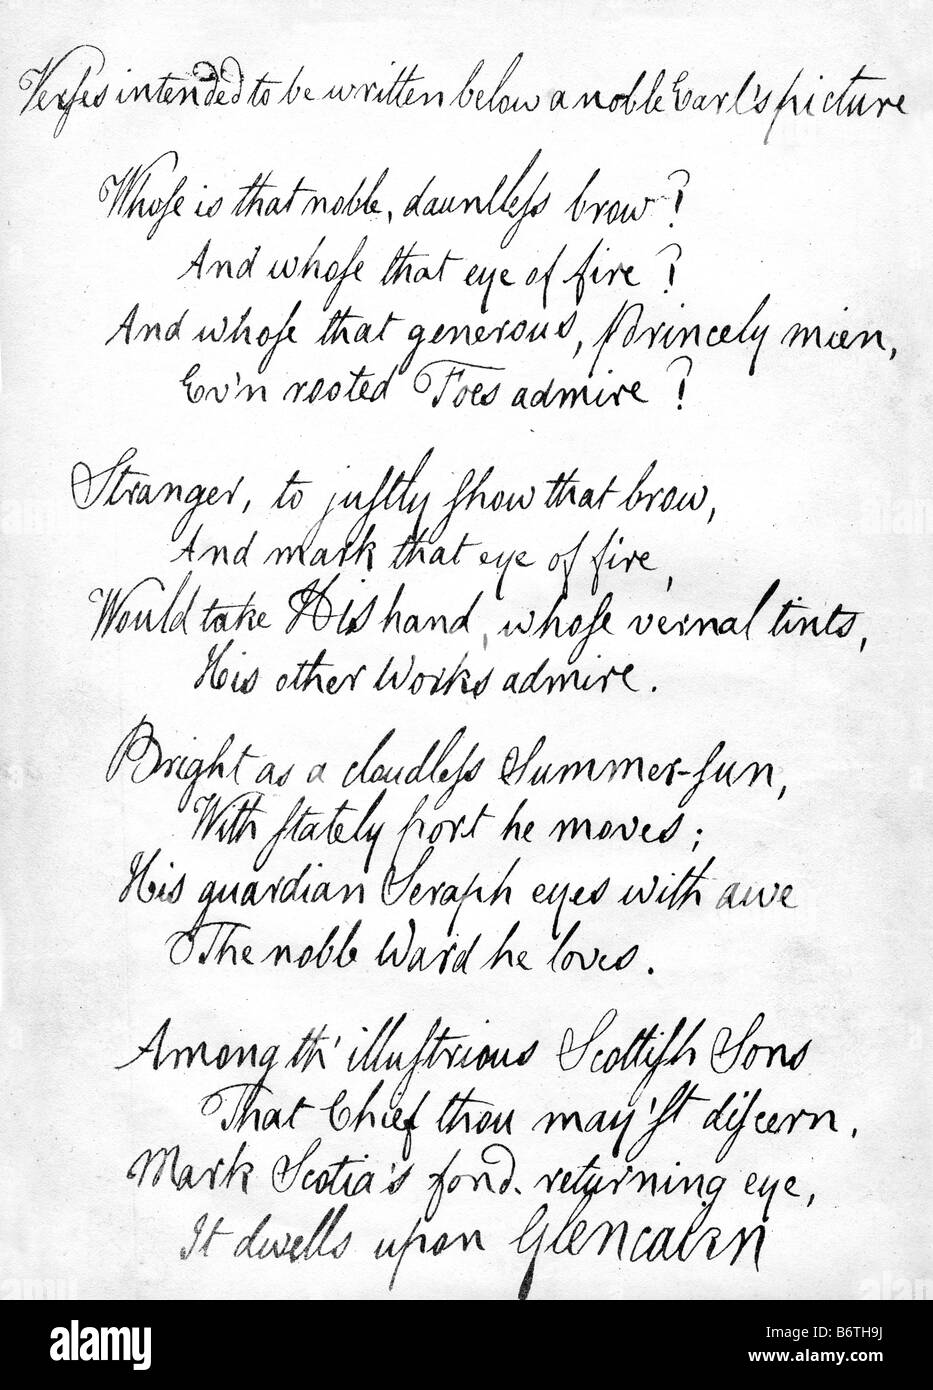 Verses intended to be written below a noble Earl's picture
Whose is that noble, dauntless brow?
And whose that eye of fire?
And whose that generous, Princely mien,
Ev'n rooted Foes admire?
Stranger, to justly show that brow,
And mark that eye of fire,
Would take His hand, whose vernal tints,
His other Works admire.
Bright as a cloudless Summer-sun,
With stately port he moves;
His guardian Seraph eyes with awe
The noble Ward he loves.
Among th' illustrious Scottish Sons
That Chief thou may'st discern,
Mark Scotia's fond. returning eye,
It dwells upon Glencairn
alamy
Image ID: B6TH9J
www.alamy.com